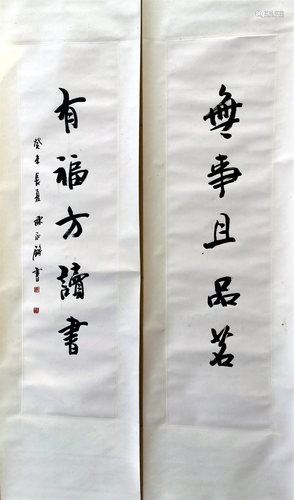 無事且品茗
有福方讀書
癸未長夏
書